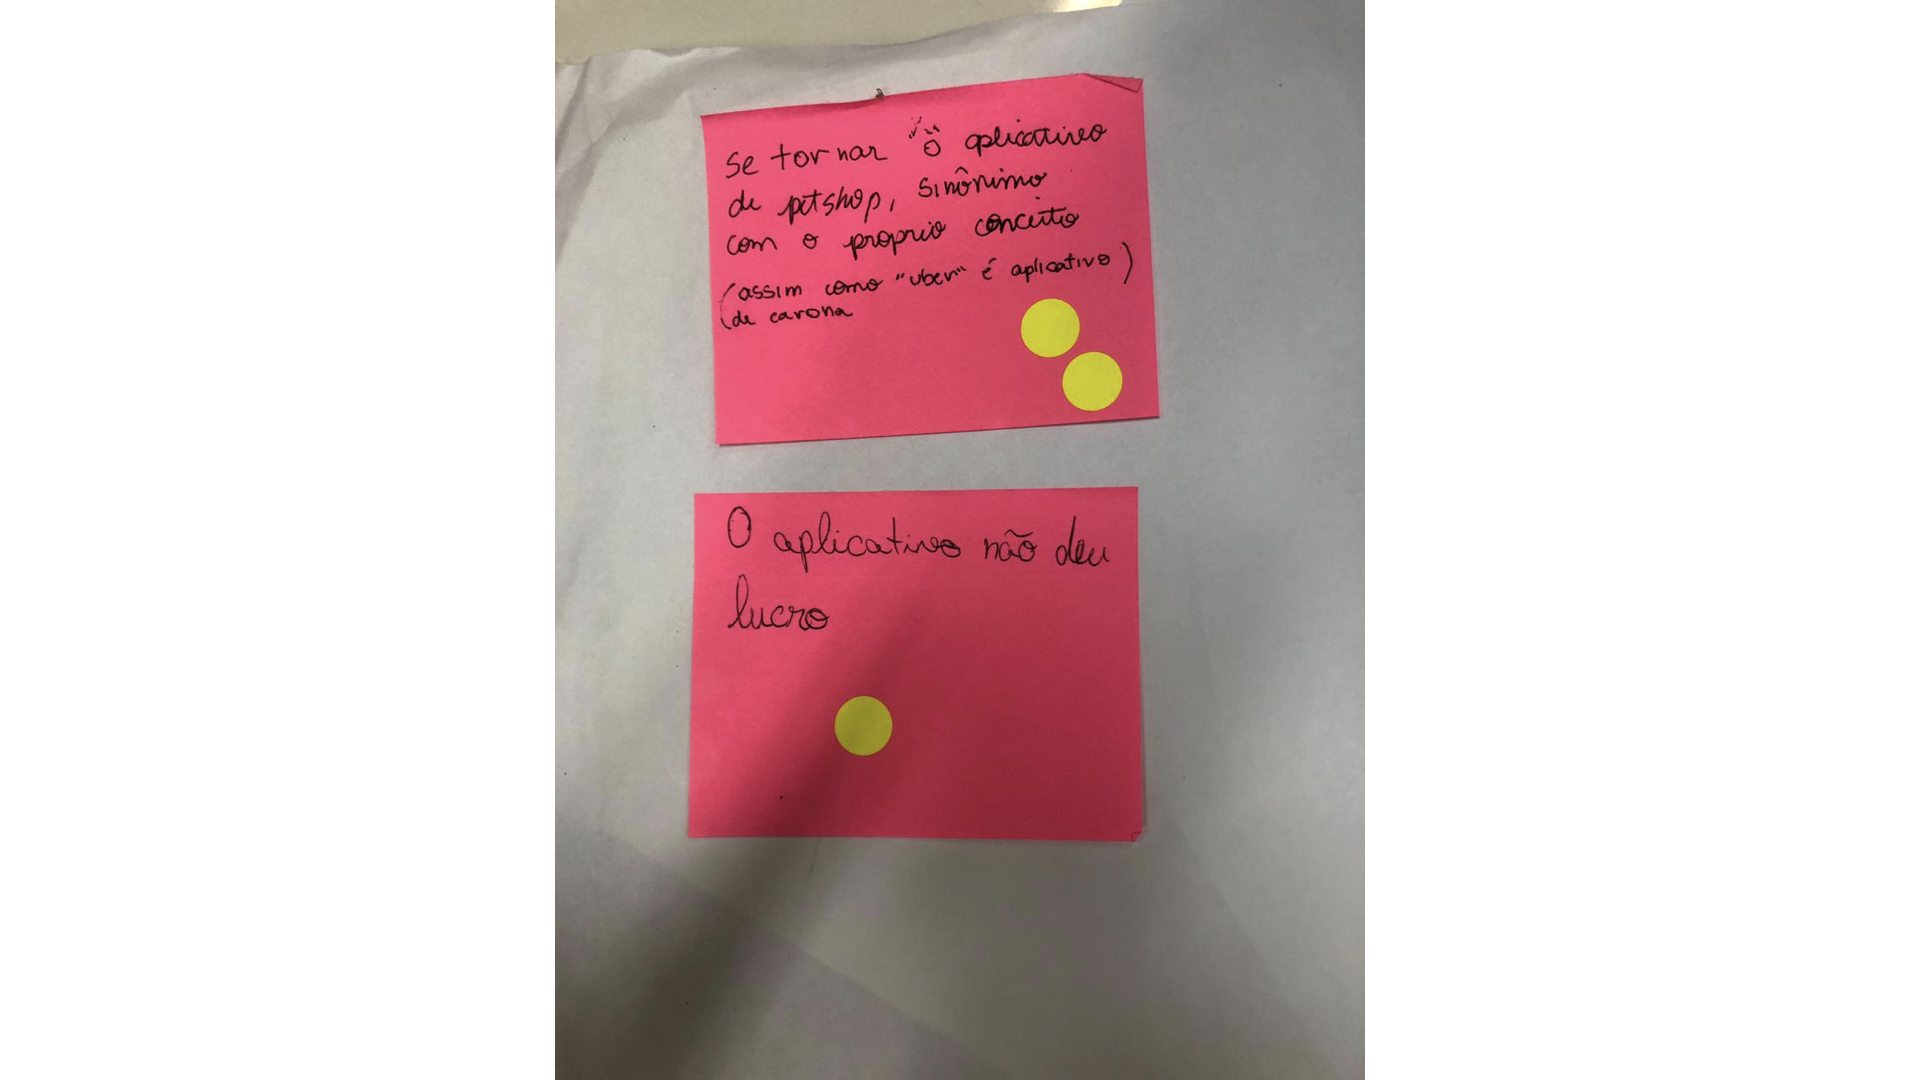 Se tornar "o" aplicativo
de petshop, sinônimo
com o proprio conceito
(assim como "uber" é aplicativo)
de carona
O aplicativo não deu
lucro